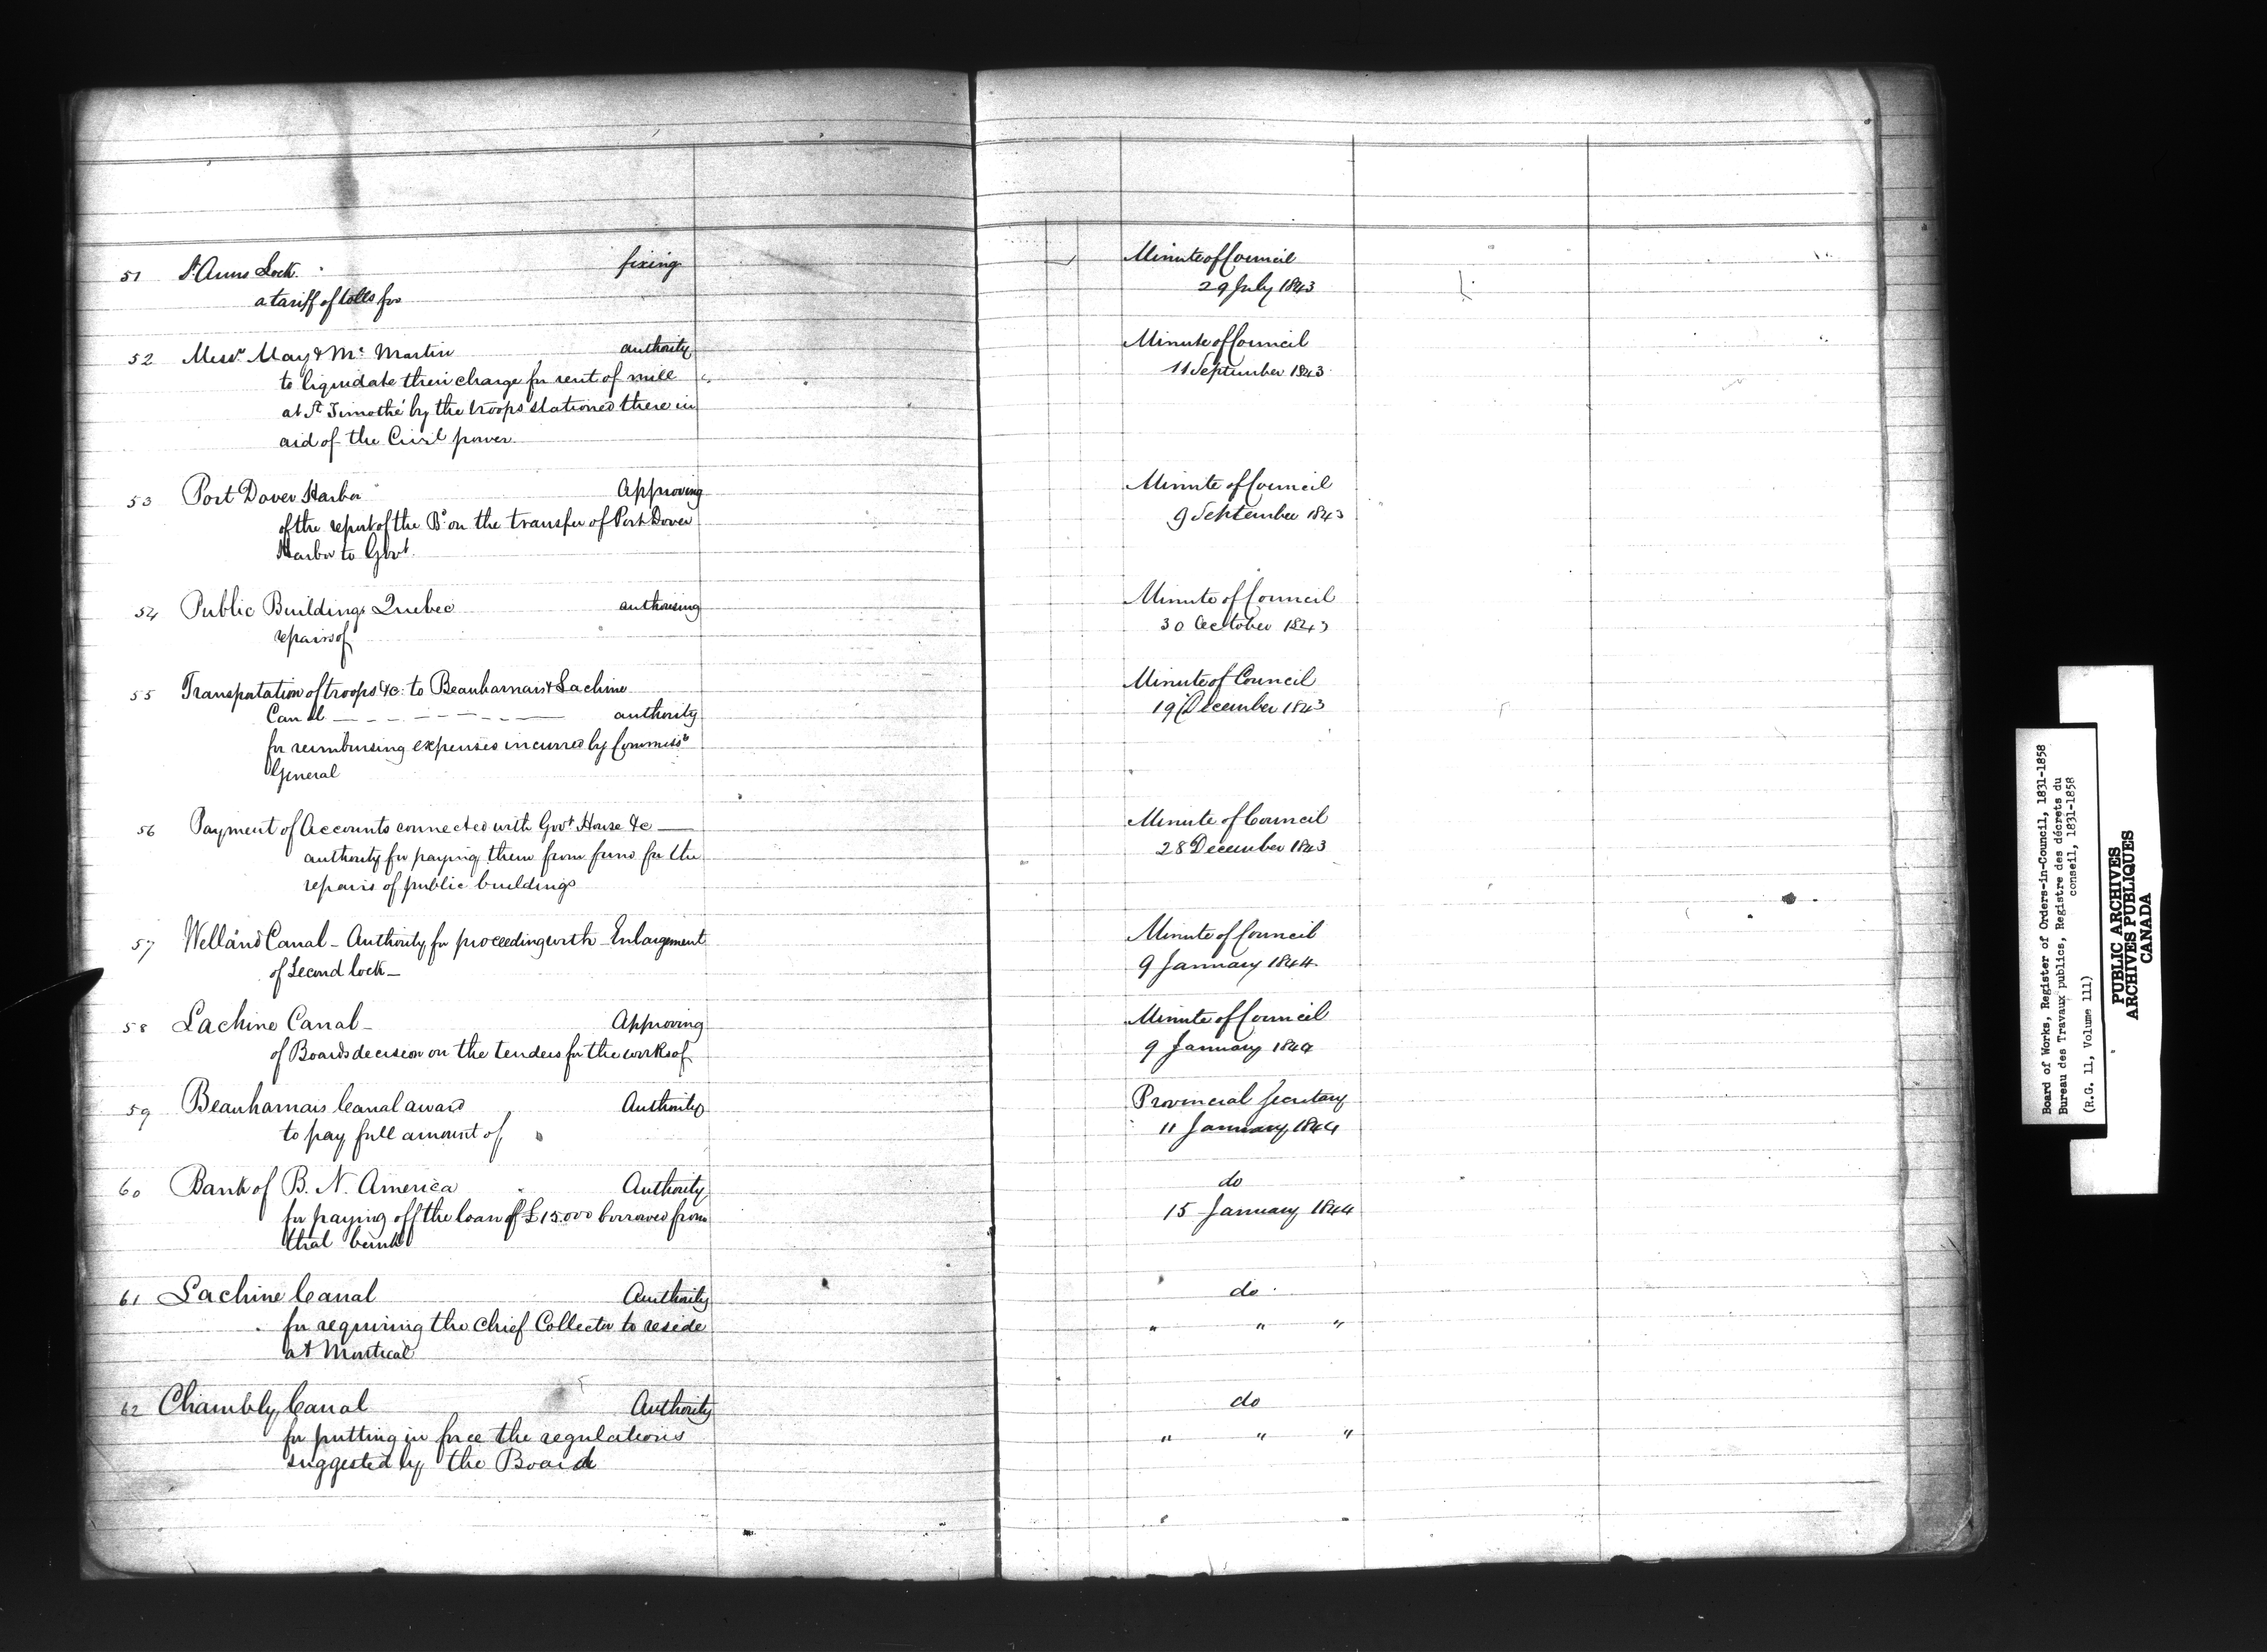 51 St Anns Lock fixing
a tariff of tolls for
Minute of Council
29 July 1843
52 Messrs May & Mc Martin authority
to liquidate their charge for rent of mill
at St Timothé by the troops stationed there in
aid of the Civil power
Minute of Council
11 September 1843
53 Port Dover Harbor Approving
of the report of the Bd on the transfer of Port Dover
Harbor to Govt.
Minute of Council
9 September 1843
54 Public Buildings Quebec authorising
repairs of
Minute of Council
30 October 1843
55 Transportation of troops &c: to Beauharnais & Lachine
Canal authority
for reimbursing expenses incurred by Commissy
General
Minute of Council
19 December 1843
56 Payment of Accounts connected with Govt House &c —
authority for paying them from fund for the
repairs of public buildings
Minute of Council
28 December 1843
57 Welland Canal - Authority for proceeding with Enlargement
of Second lock -
Minute of Council
9 January 1844.
58 Lachine Canal - Approving
of Boards decision on the tenders for the works of
Minute of Council
9 January 1844
59 Beauharnais Canal award Authority
to pay full amount of
Provincial Secretary
11 January 1844
60 Bank of B. N. America Authority
for paying off the loan of £15.000 borrowed from
that bank
do
15 January 1844
61 Lachine Canal Authority
for requiring the Chief Collector to reside
at Montreal
do
" " "
62 Chambly Canal Authority
for putting in force the regulations
suggested by the Board
do
" " "
Board of Works, Register of Orders-in-Council, 1831-1858
Bureau des Travaux publics, Registre des décrets du
conseil, 1831-1858
(R.G. 11, Volume 111)
PUBLIC ARCHIVES
ARCHIVES PUBLIQUES
CANADA